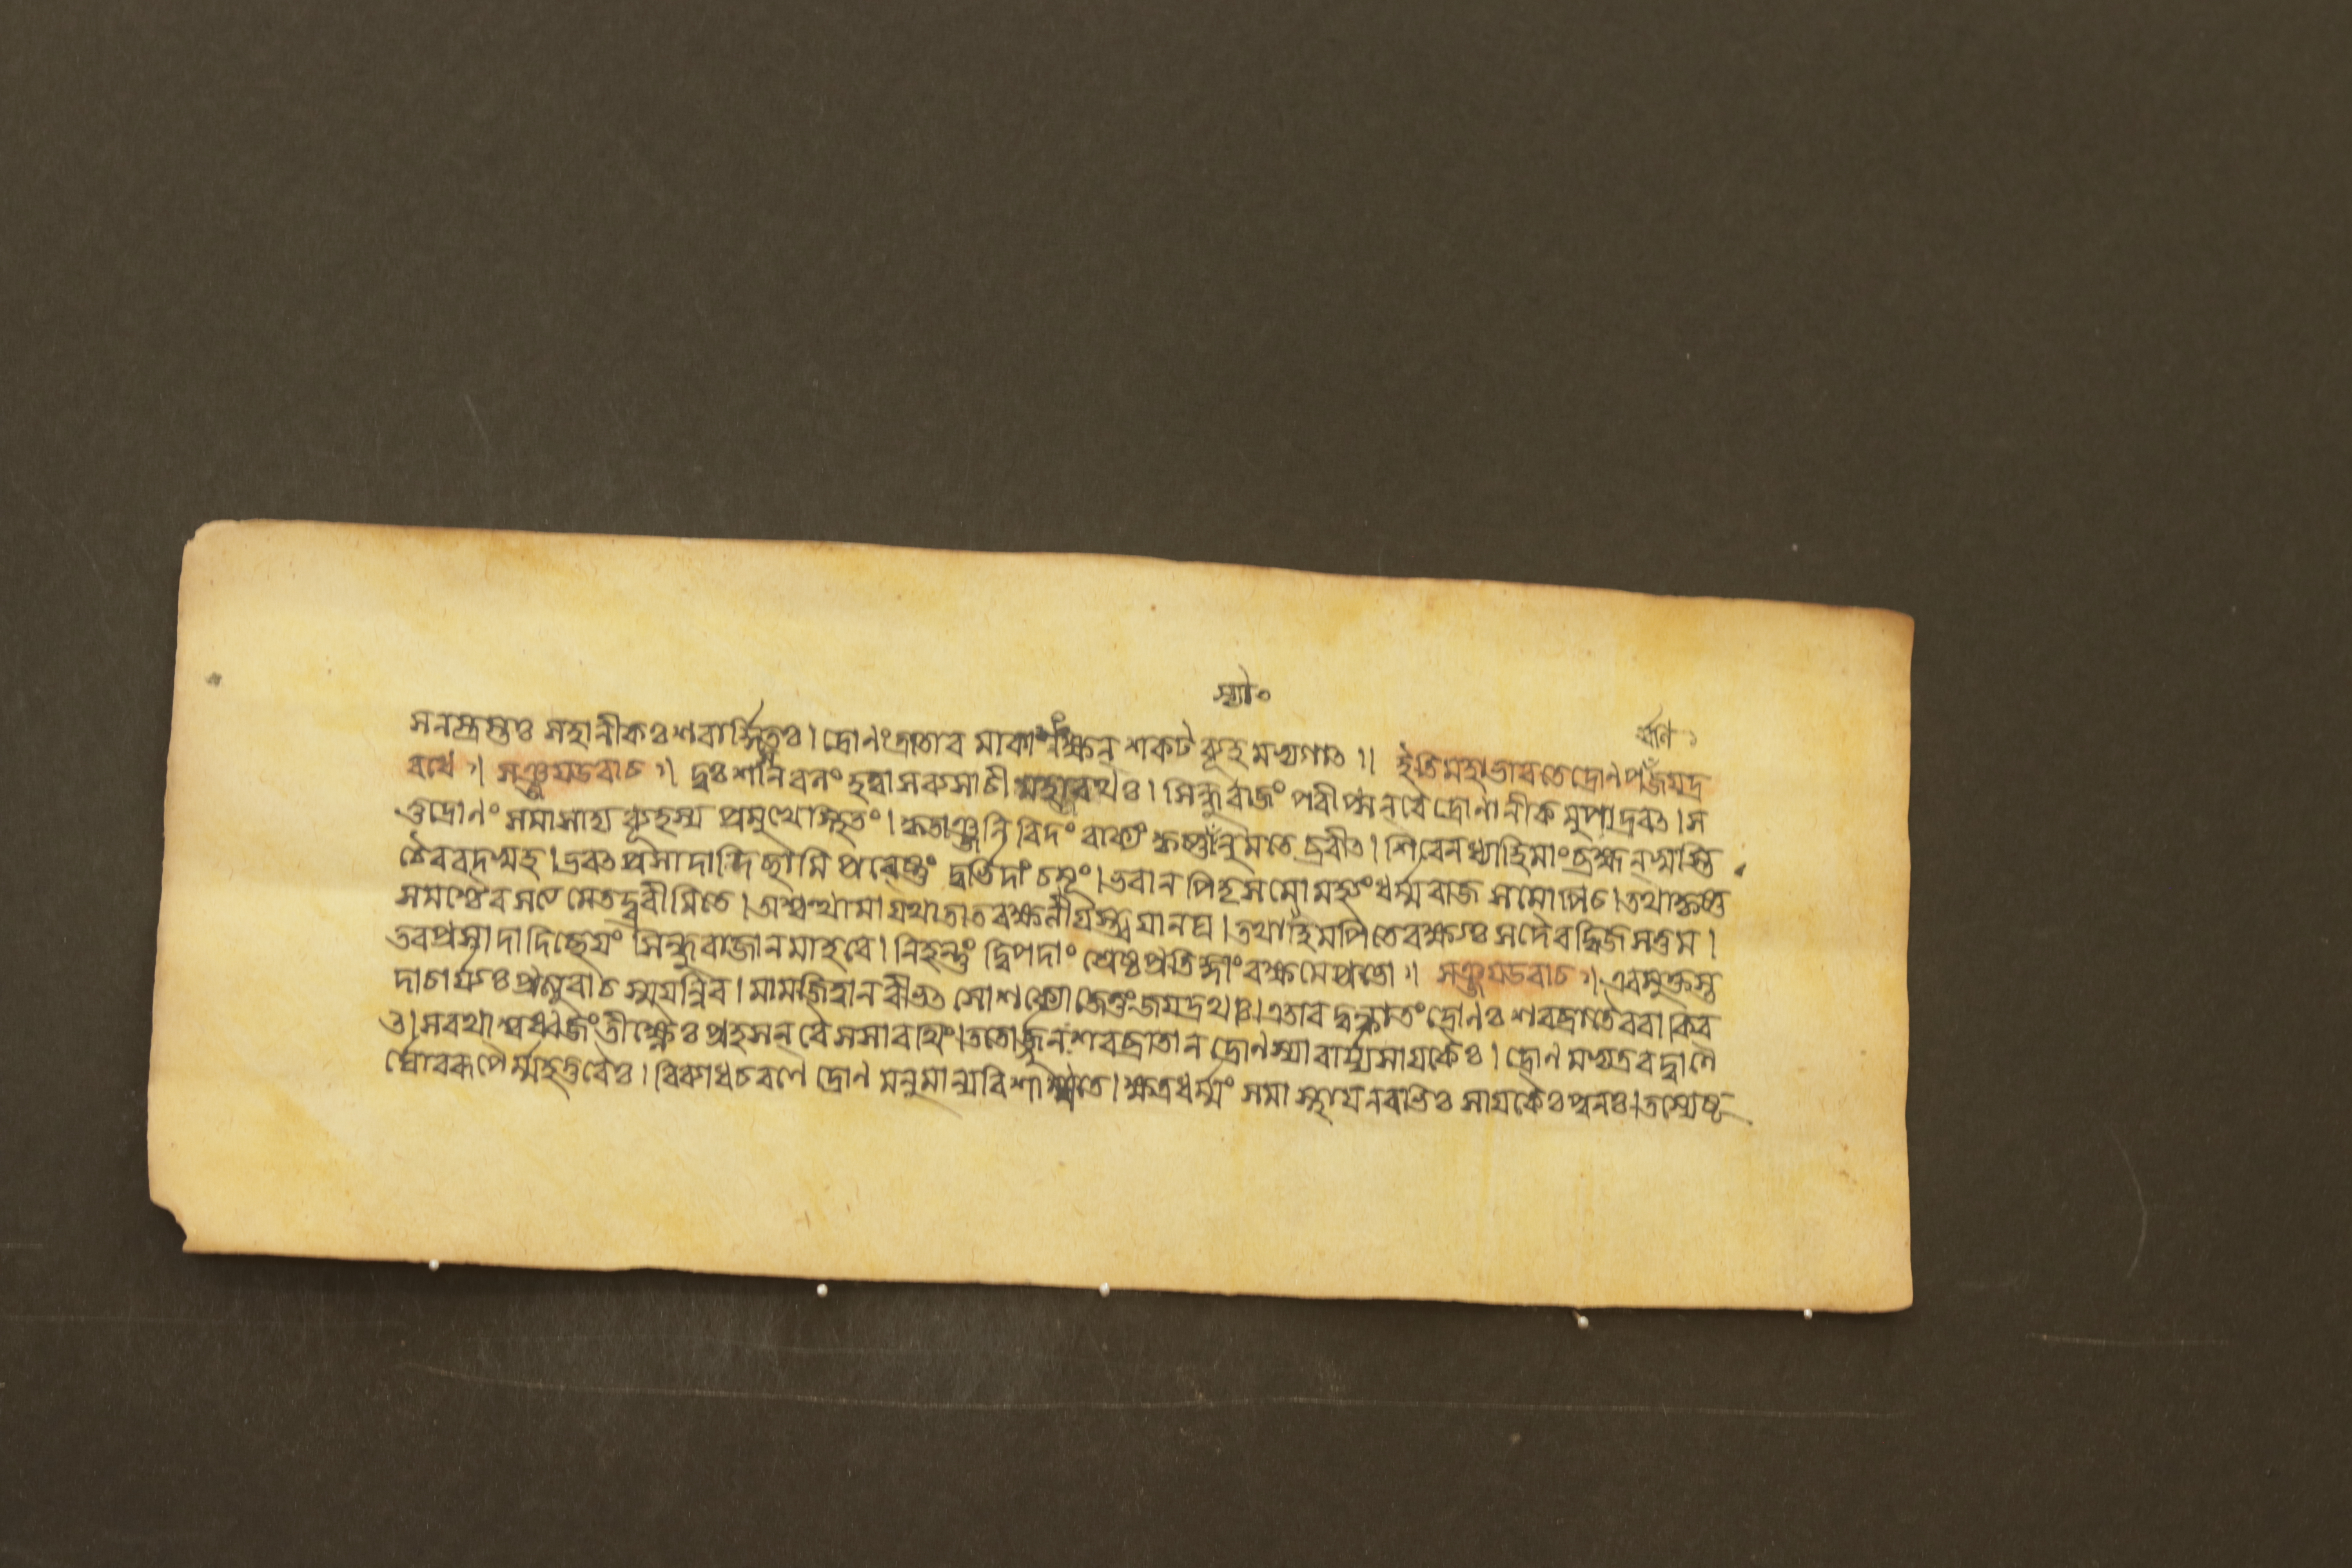 স্যাং
র্ব্বণি
সনস্ত্রস্তঃ সহানীকঃ শরার্দ্দিতঃ। দ্রোণং ত্রাতারমাকাংক্ষন্ শকটব্যূহমভ্যগাৎ॥ ইতি মহাভারতে দ্রোণপ জয়দ্র
রথে॥ সঞ্জয়উবাচ॥ দুঃশাসনবলং হত্বা সব্যসাচী মহারথঃ। সিন্ধুরাজং পরীপ্সন্ বৈ দ্রোণানীকমুপাদ্রবৎ। স
তু দ্রোণং সমাসাদ্য ব্যূহস্য প্রমুখে স্থিতং। কৃতাঞ্জলিরিদং বাক্যং কৃষ্ণানুমতেব্রবীৎ। শিবেন ধ্যাহি মাং ব্রহ্মন্ স্বস্তি
চৈব বদস্ব মহ। ভবৎপ্রসাদাদিচ্ছামি প্রবেষ্টুং দুর্ভিদাং চমূং। ভবান্ পিতৃসমো মহ্যং ধর্ম্মরাজসমোপি চ। তথা কৃষ্ণ
সমশ্চৈব সত্যমেতদ্ব্রবীমি তে। অশ্বত্থামা যথা তাত রক্ষণীয়স্ত্বয়ানঘ। তথাহমপি তে রক্ষ্যঃ সদৈব দ্বিজসত্তম।
তব প্রসাদাদিচ্ছেয়ং সিন্ধুরাজানমাহবে। নিহন্তুং দ্বিপদাং শ্রেষ্ঠ প্রতিজ্ঞাং রক্ষ মে প্রভো॥ সঞ্জয়উবাচ॥ এবমুক্তস্ত
দাচার্য্যঃ প্রত্যুবাচ স্ময়ন্নিব। মামজিত্বা ন বীভৎসো শক্যো জেতুং জয়দ্রথঃ। এতাবদুক্ত্বা তং দ্রোণঃ শরব্রাতৈরবাকির
ৎ। সরথাশ্বধ্বজং তীক্ষ্ণৈঃ প্রহসন্ বৈ সসারথিং। ততোর্জ্জুনঃ শরব্রাতান্ দ্রোণস্যাবার্য্য সায়কৈঃ। দ্রোণমভ্যদ্রবদ্বাণৈ
র্ঘোররূপৈর্ম্মহত্তরৈঃ। বিব্যাধ চ রণে দ্রোণমনুমান্য বিশাম্পতে। ক্ষত্রধর্ম্মং সমাস্থায় নবভিঃ সায়কৈঃ পুনঃ। তস্যেষূ